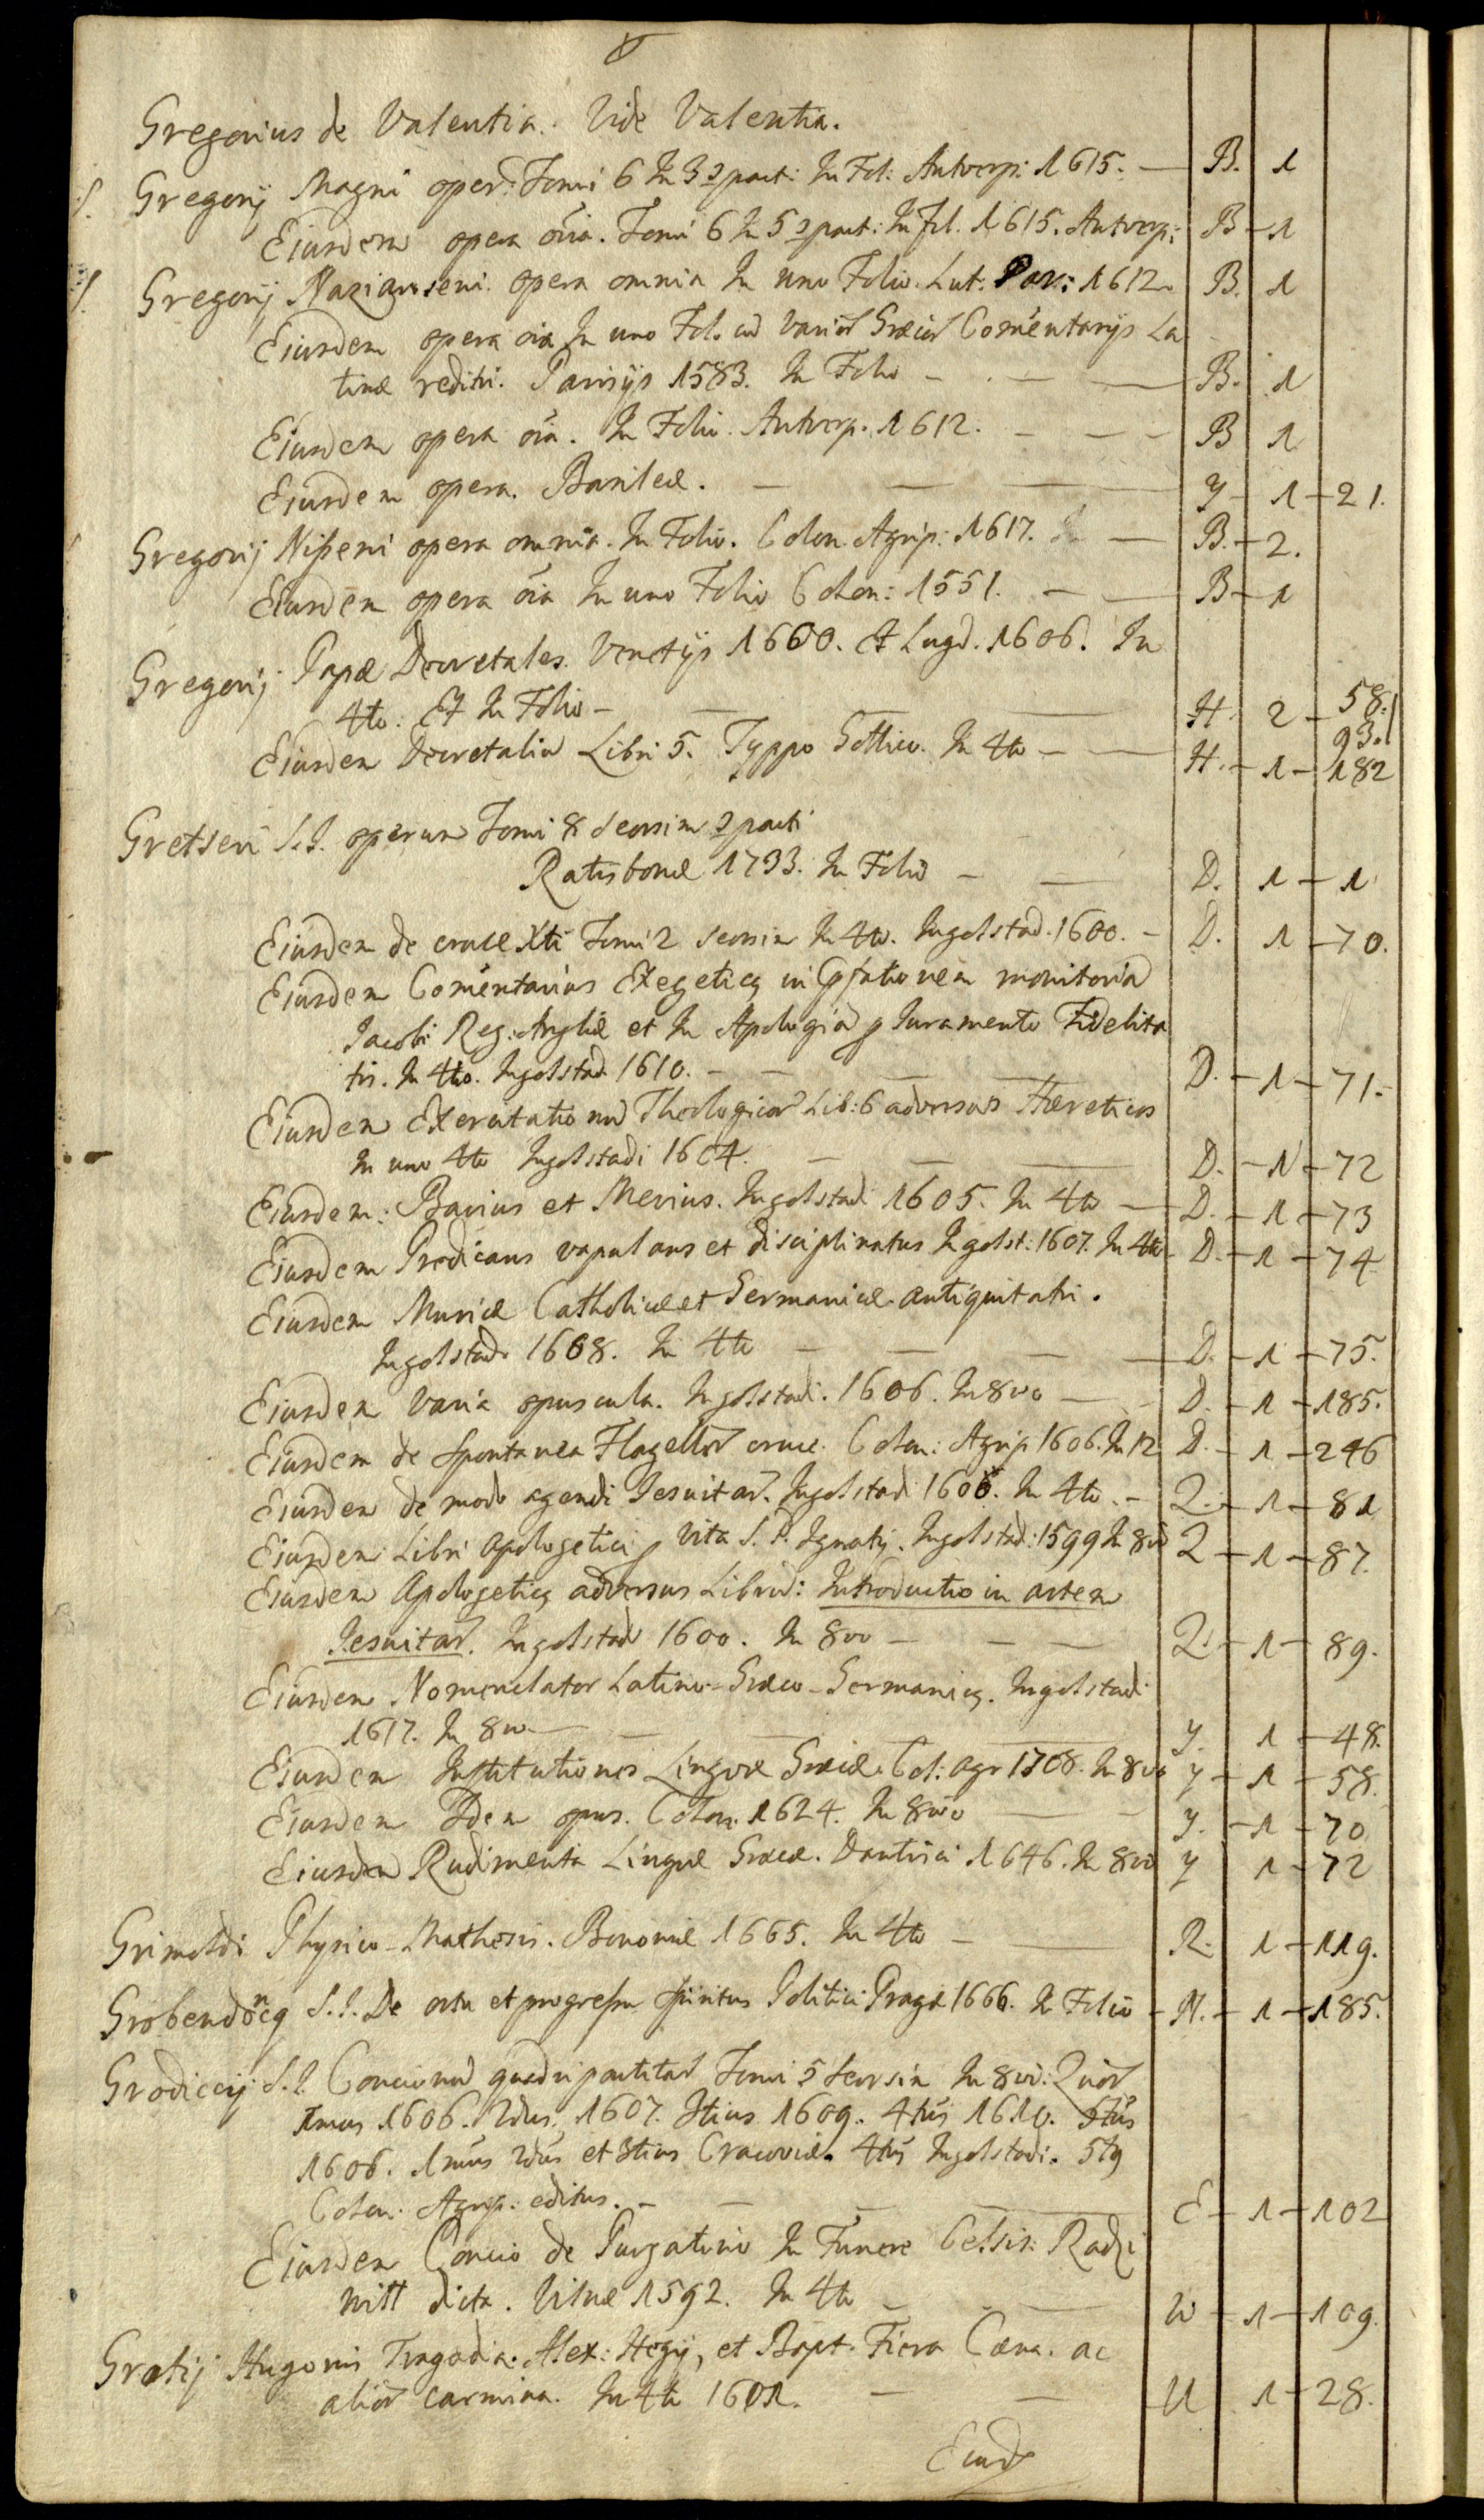 Gregorius de Valentia. Vide Valentia.
S. Gregorij Magni oper: Tomi 6 In 3 part: In Fol: Antverp: 1615. — B. 1
Eiusdem opera oia. Tomi 6 In 5 part: In Fol. 1615. Antverp: B - 1
S. Gregorij Nazianseni opera omnia In uno Folio. Lut: Par: 1612. B. 1
Eiusdem opera oia In uno Fol. cu varior Graecor Comentarijs La
tinae rediti. Parisijs 1583. In Folio — B. 1
Eiusdem opera oia. In Folio. Antverp. 1612. — B 1
Eiusdem opera. Basileae. — Y - 1 - 21.
Gregorij Nisseni opera omnia. In Folio. Colon. Agrip: 1617. — B. - 2.
Eiusdem opera oia In uno Folio Colon: 1551. — B - 1
Gregorij Papae Decretales. Venetijs 1600. Et Lugd. 1606. In
4to. Et In Folio — H. 2 - 58. 93.
Eiusdem Decretaliu Libri 5. Typpo Gottico. In 4to — H. - 1 - 182
Gretseri S.J. operum Tomi 8 seorsim parti
Ratisbonae 1733. In Folio — D. 1 - 1
Eiusdem de cruce Xti Tomi 2 seorsim In 4to. Ingolstad. 1600. — D. 1 - 70.
Eiusdem Comentarius Exegeticq in Pfationem monitoria
Jacobi Reg: Angliae et In Apologia p Juramento Fidelita
tis. In 4to. Ingolstad 1610. — D. - 1 - 71.
Eiusdem Exercitationu Theologicar Lib: 6 adversus Haereticos
In uno 4to Ingolstadi 1604. — D. - 1 - 72
Eiusdem: Bavius et Mevius. Ingolstadi 1605. In 4to — D. - 1 - 73
Eiusdem Praedicans vapulans et disciplinatus Ingolst: 1607. In 4to - D. - 1 - 74
Eiusdem Muricae Catholicae et Germanicae antiquitatis.
Ingolstad. 1608. In 4to — D. - 1 - 75.
Eiusdem varia opuscula. Ingolstadi. 1606. In 8vo — D. - 1 - 185.
Eiusdem de Spontanea Flagellor cruce. Colon: Agrip 1606. In 12 D. - 1 - 246
Eiusdem de modo agendi Jesuitar. Ingolstad 1600. In 4to. - Q. - 1 - 81
Eiusdem Libri Apologetici p vita S. P. Ignatij. Ingolstad: 1599 In 8vo Q - 1 - 87.
Eiusdem Apologeticq adversus Libru: Introductio in artem
Jesuitar. Ingolstad 1600. In 8vo — Q. - 1 - 89.
Eiusdem Nomenclator Latino-Graeco-Germanicq. Ingolstadi
1617. In 8vo — Y. 1 - 48.
Eiusdem Institutiones Linguae Graecae. Col: Agr 1708. In 8vo Y - 1 - 58.
Eiusdem Idem opus. Colon. 1624. In 8vo — Y. - 1 - 70
Eiusdem Rudimenta Linguae Graecae. Dantisci 1646. In 8vo Y 1 - 72
Grimaldi Physico-Mathesis. Bononiae 1665. In 4to — R. 1 - 119.
Grobendoncq S.J. De ortu et progressu Spiritus Politici Pragae 1666. In Folio - N. - 1 - 185.
Grodiccij S.J. Concionu quadripartitar Tomi 5 seorsim In 8vo: Quor
1mus 1606. 2dus. 1607. 3tius 1609. 4tus 1610. 5tus
1606. 1mus 2dus et 3tius Cracoviae. 4tus Ingolstadi. 5tq
Colon: Agrip: editus. — E - 1 - 102
Eiusdem Concio de Purgatorio In Funere Celsis: Radzi
vill dicta. Vilnae 1592. In 4to — W - 1 - 109.
Grotij Hugonis Tragaedia. Alex: Hegij, et Bapt. Fiera Caena. ac
alior carmina. In 4to 1601. — U 1 - 28.
Eiusd